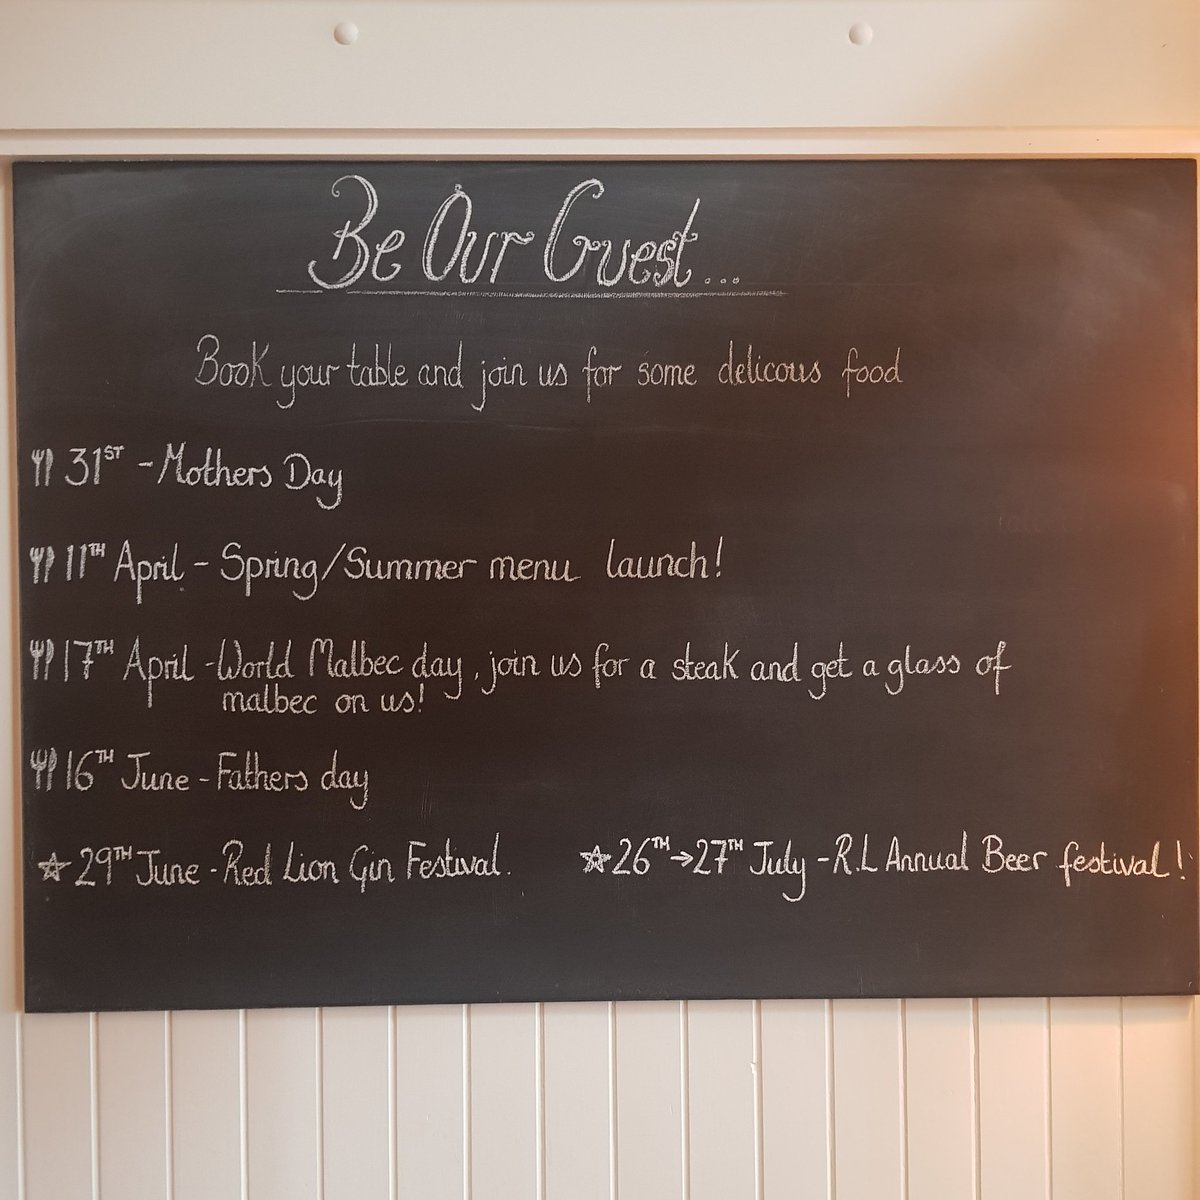 Be Our Guest...
Book your table and join us for some delicous food
31ST - Mothers Day
11TH April - Spring/Summer menu launch!
17TH April - World Malbec day, join us for a steak and get a glass of
malbec on us!
16TH June - Fathers day
☆ 29TH June - Red Lion Gin Festival. ☆ 26TH → 27TH July - R.L Annual Beer festival!